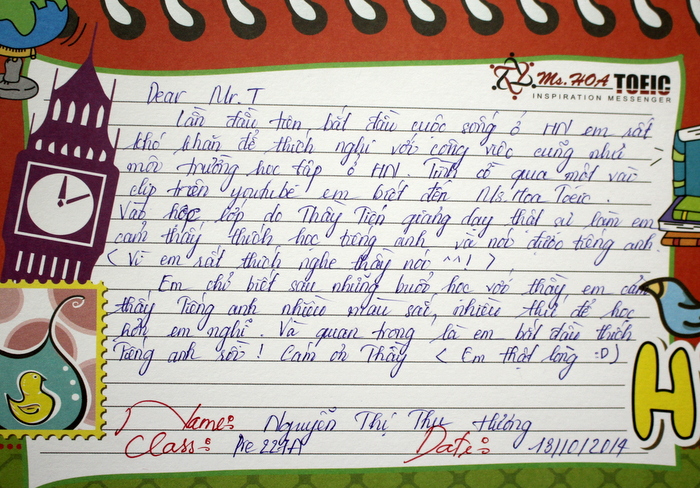 Ms. HOA TOEIC
INSPIRATION MESSENGER
Dear Mr. T
Lần đầu tiên bắt đầu cuộc sống ở HN em rất
khó khăn để thích nghi với công việc cũng như
môi trường học tập ở HN. Tình cờ qua một vài
clip trên youtube em biết đến Ms. Hoa Toeic.
Vào học lớp do Thầy Tiện giảng dạy thật sự làm em
cảm thấy thích học tiếng anh và nói được tiếng anh
< Vì em rất thích nghe thầy nói ^^! >
Em chỉ biết sau những buổi học với thầy, em cảm
thấy Tiếng anh nhiều màu sắc, nhiều thứ để học
hơn em nghĩ. Và quan trọng là em bắt đầu thích
Tiếng anh rồi! Cám ơn Thầy < Em thật lòng :D)
Name: Nguyễn Thị Thu Hương
Class: Pre 221A
Date: 18/10/2014
H